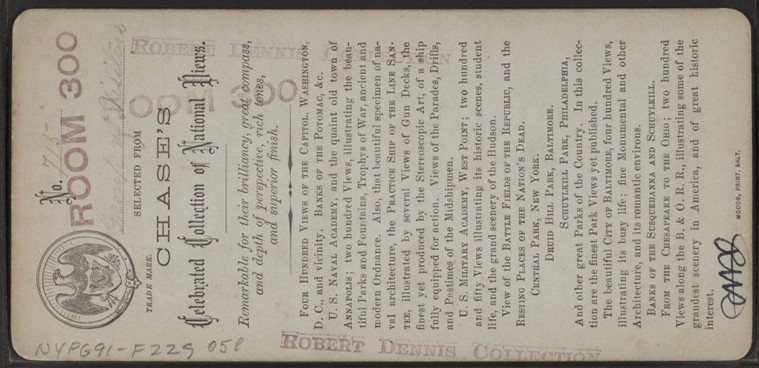 No. 73-
ROOM 300
SELECTED FROM
TRADE MARK.
CHASE'S
Celebrated Collection of National Views.
Remarkable for their brilliancy, great compass,
and depth of perspective, rich tones,
and superior finish.
FOUR HUNDRED VIEWS OF THE CAPITOL, WASHINGTON,
D. C., and vicinity. BANKS OF THE POTOMAC, &c.
U. S. NAVAL ACADEMY, and the quaint old town of
ANNAPOLIS; two hundred Views, illustrating the beau-
tiful Parks and Fountains, Trophys of War, ancient and
modern Ordnance. Also, that beautiful specimen of na-
val architecture, the PRACTICE SHIP OF THE LINE SAN-
TEE, illustrated by several Views of Gun Decks, the
finest yet produced by the Stereoscopic Art, of a ship
fully equipped for action. Views of the Parades, Drills,
and Pastimes of the Midshipmen.
U. S. MILITARY ACADEMY, WEST POINT; two hundred
and fifty Views illustrating its historic scenes, student
life, and the grand scenery of the Hudson.
View of the BATTLE FIELDS OF THE REPUBLIC, and the
RESTING PLACES OF THE NATION'S DEAD.
CENTRAL PARK, NEW YORK.
DRUID HILL PARK, BALTIMORE.
SCHUYLKILL PARK, PHILADELPHIA,
And other great Parks of the Country. In this collec-
tion are the finest Park Views yet published.
The beautiful CITY OF BALTIMORE, four hundred Views,
illustrating its busy life; fine Monumental and other
Architecture, and its romantic environs.
BANKS OF THE SUSQUEHANNA AND SCHUYLKILL.
FROM THE CHESAPEAKE TO THE OHIO; two hundred
Views along the B. & O. R. R., illustrating some of the
grandest scenery in America, and of great historic
interest.
WOODS, PRINT. BALT.
ROBERT DENNIS
ROOM 300
ROBERT DENNIS COLLECTION
NYPG91-F229 058